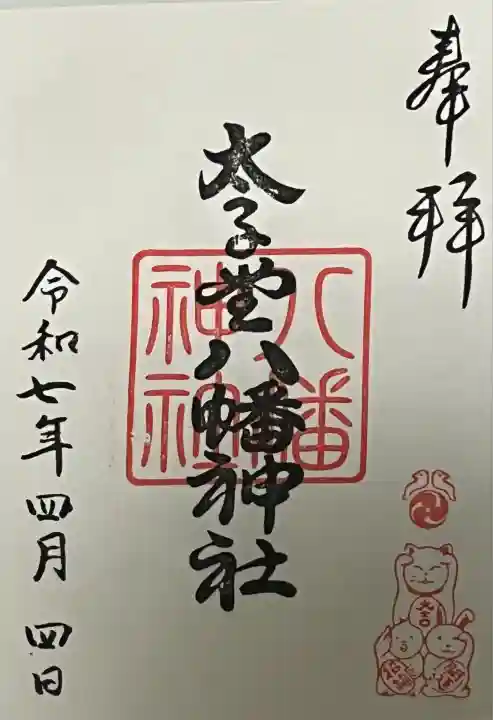 奉拝
太子堂八幡神社
八幡
神社
令和七年 四月 四日
大吉